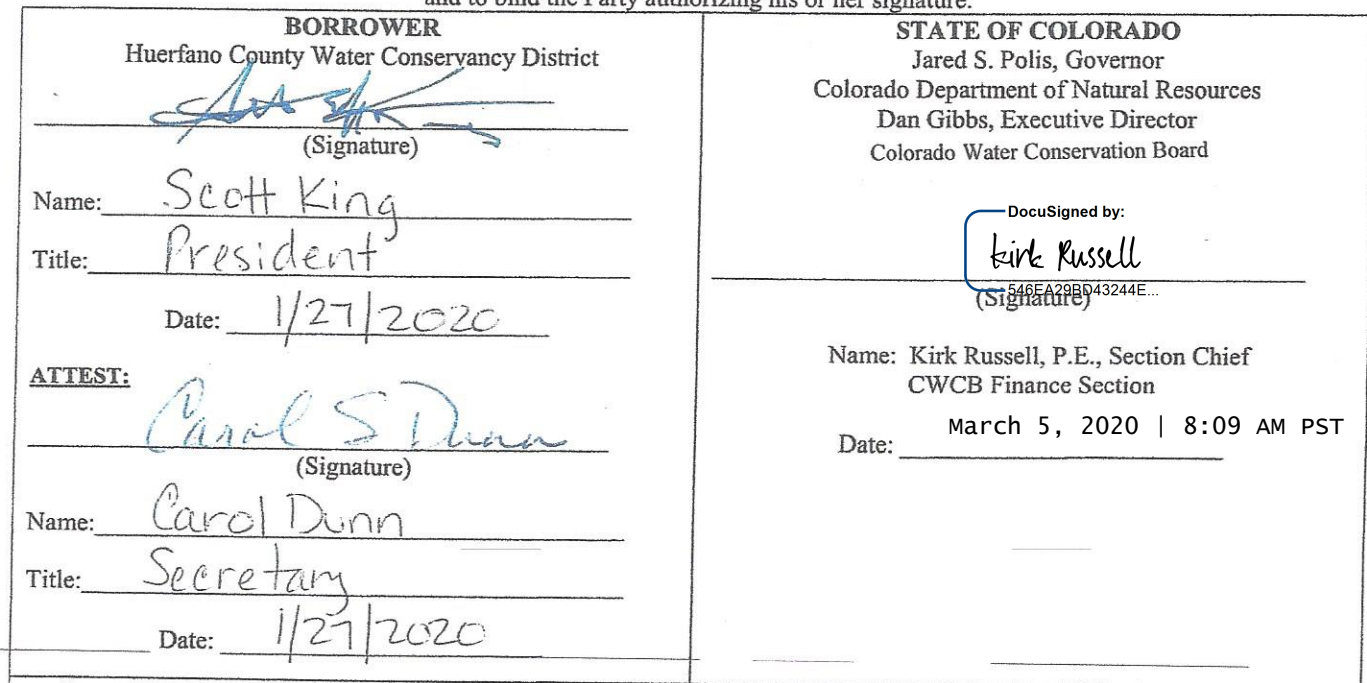 and to bind the Party authorizing his or her signature.
BORROWER
Huerfano County Water Conservancy District
(Signature)
Name: Scott King
Title: President
Date: 1/27/2020
ATTEST:
Carol S Dunn
(Signature)
Name: Carol Dunn
Title: Secretary
Date: 1/27/2020
STATE OF COLORADO
Jared S. Polis, Governor
Colorado Department of Natural Resources
Dan Gibbs, Executive Director
Colorado Water Conservation Board
DocuSigned by:
kirk Russell
546EA29BD43244E...
(Signature)
Name: Kirk Russell, P.E., Section Chief
CWCB Finance Section
Date: March 5, 2020 | 8:09 AM PST